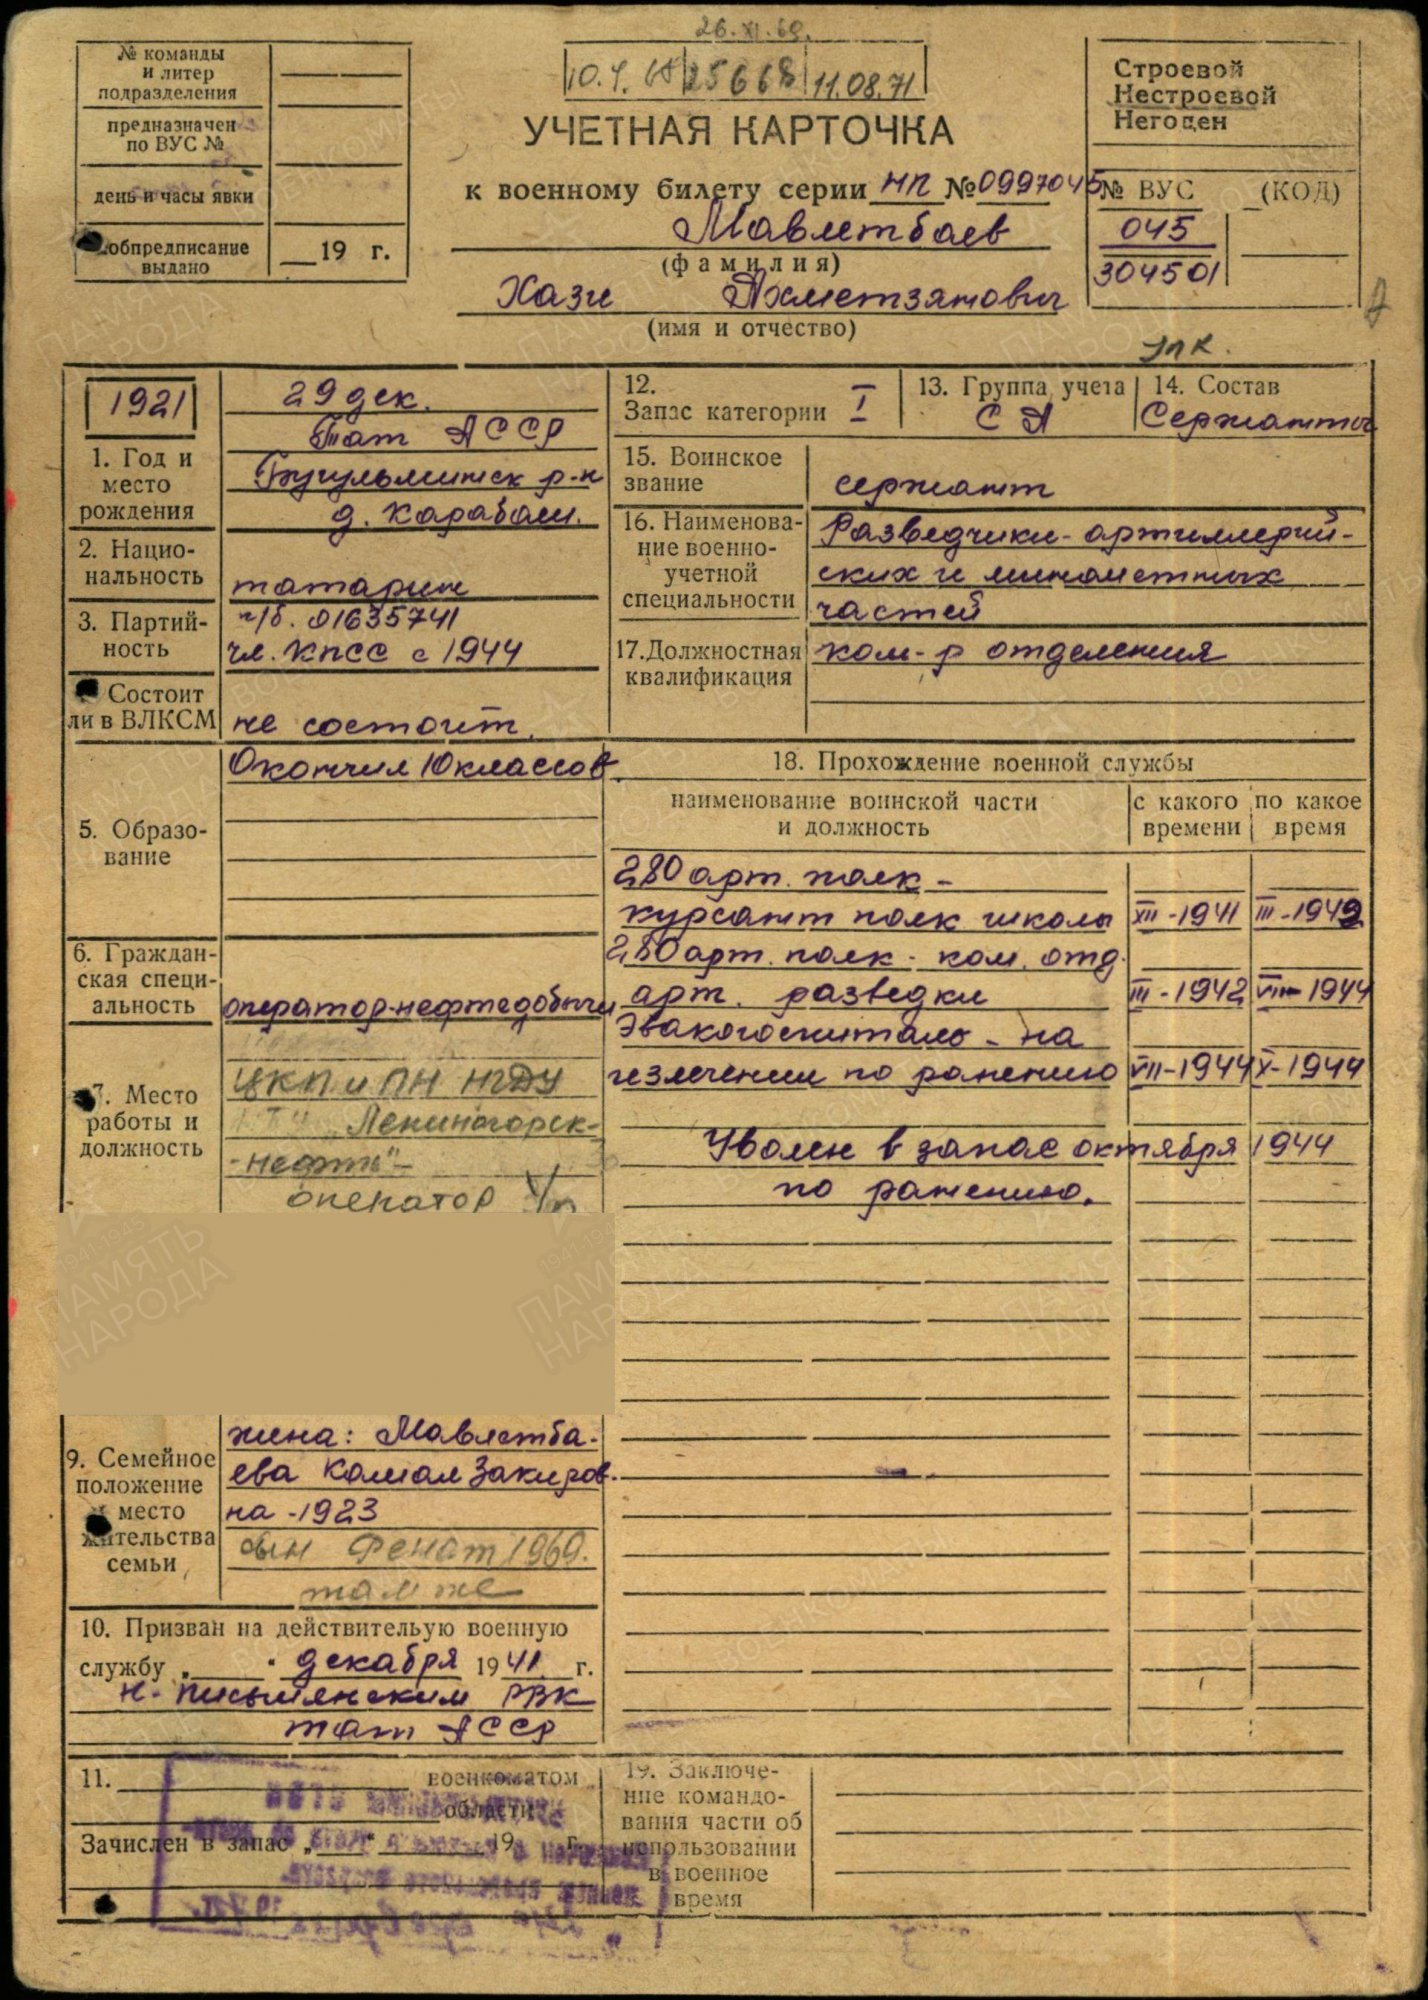 26.XI.69.
№ команды
и литер
подразделения
предназначен
по ВУС №
день и часы явки
обпредписание
выдано
19 г.
25668 11.08.71
УЧЕТНАЯ КАРТОЧКА
к военному билету серии НП № 0997045
Мавлетбаев
(фамилия)
Хази Ахметзянович
(имя и отчество)
Строевой
Нестроевой
Негоден
№ ВУС (КОД)
045
304501
1921
1. Год и
место
рождения
29 дек.
Тат АССР
Бугульминск р-н
д. Карабаш.
2. Нацио-
нальность
татарин
3. Партий-
ность
п/б. 01635741
чл. КПСС с 1944
Состоит
ли в ВЛКСМ
не состоит.
5. Образо-
вание
Окончил 10 классов
6. Граждан-
ская специ-
альность
оператор-нефтедобычи
7. Место
работы и
должность
ЦКППН НГДУ
"Лениногорск-
-нефть"-
оператор
9. Семейное
положение
и место
жительства
семьи
жена: Мавлетба-
ева Камал Закиров-
на -1923
сын Фенат 1969.
там же
10. Призван на действительую военную
службу „ “ декабря 1941 г.
Н-Письмянским РВК
Тат АССР
11. военкоматом
области
Зачислен в запас „ “ 19 г.
12.
Запас категории I
13. Группа учета
СА
14. Состав
Сержанты
15. Воинское
звание
сержант
16. Наименова-
ние военно-
учетной
специальности
Разведчики-артиллерий-
ских и минометных
частей
17.Должностная
квалификация
ком-р отделения
18. Прохождение военной службы
наименование воинской части
и должность
с какого
времени
по какое
время
280 арт. полк -
курсант полк школы XII-1941 III-1942
280 арт. полк - ком. отд.
арт. разведки III-1942 VII-1944
Эвакогоспиталь - на
излечении по ранению VII-1944 X-1944
Уволен в запас октября 1944
по ранению.
19. Заключе-
ние командо-
вания части об
использовании
в военное
время
ПАМЯТЬ
НАРОДА
ВОЕНКОМАТЫ